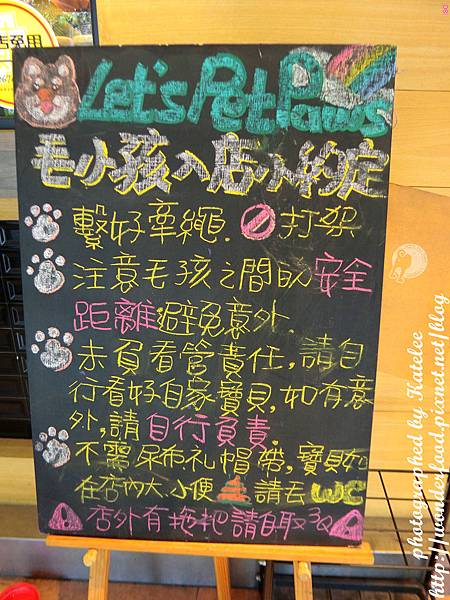 店免用
Let's Pet Paws
毛小孩入店小約定
繫好牽繩. 打架
注意毛孩之間的安全
距離避免意外.
未負看管責任,請自
行看好自家寶貝,如有意
外,請自行負責.
不需尿布礼帽帶,寶貝如
在店內大.小便 請丟WC
店外有拖把請自取3Q
photographed by Katelee
http://wonderfood.pixnet.net/blog